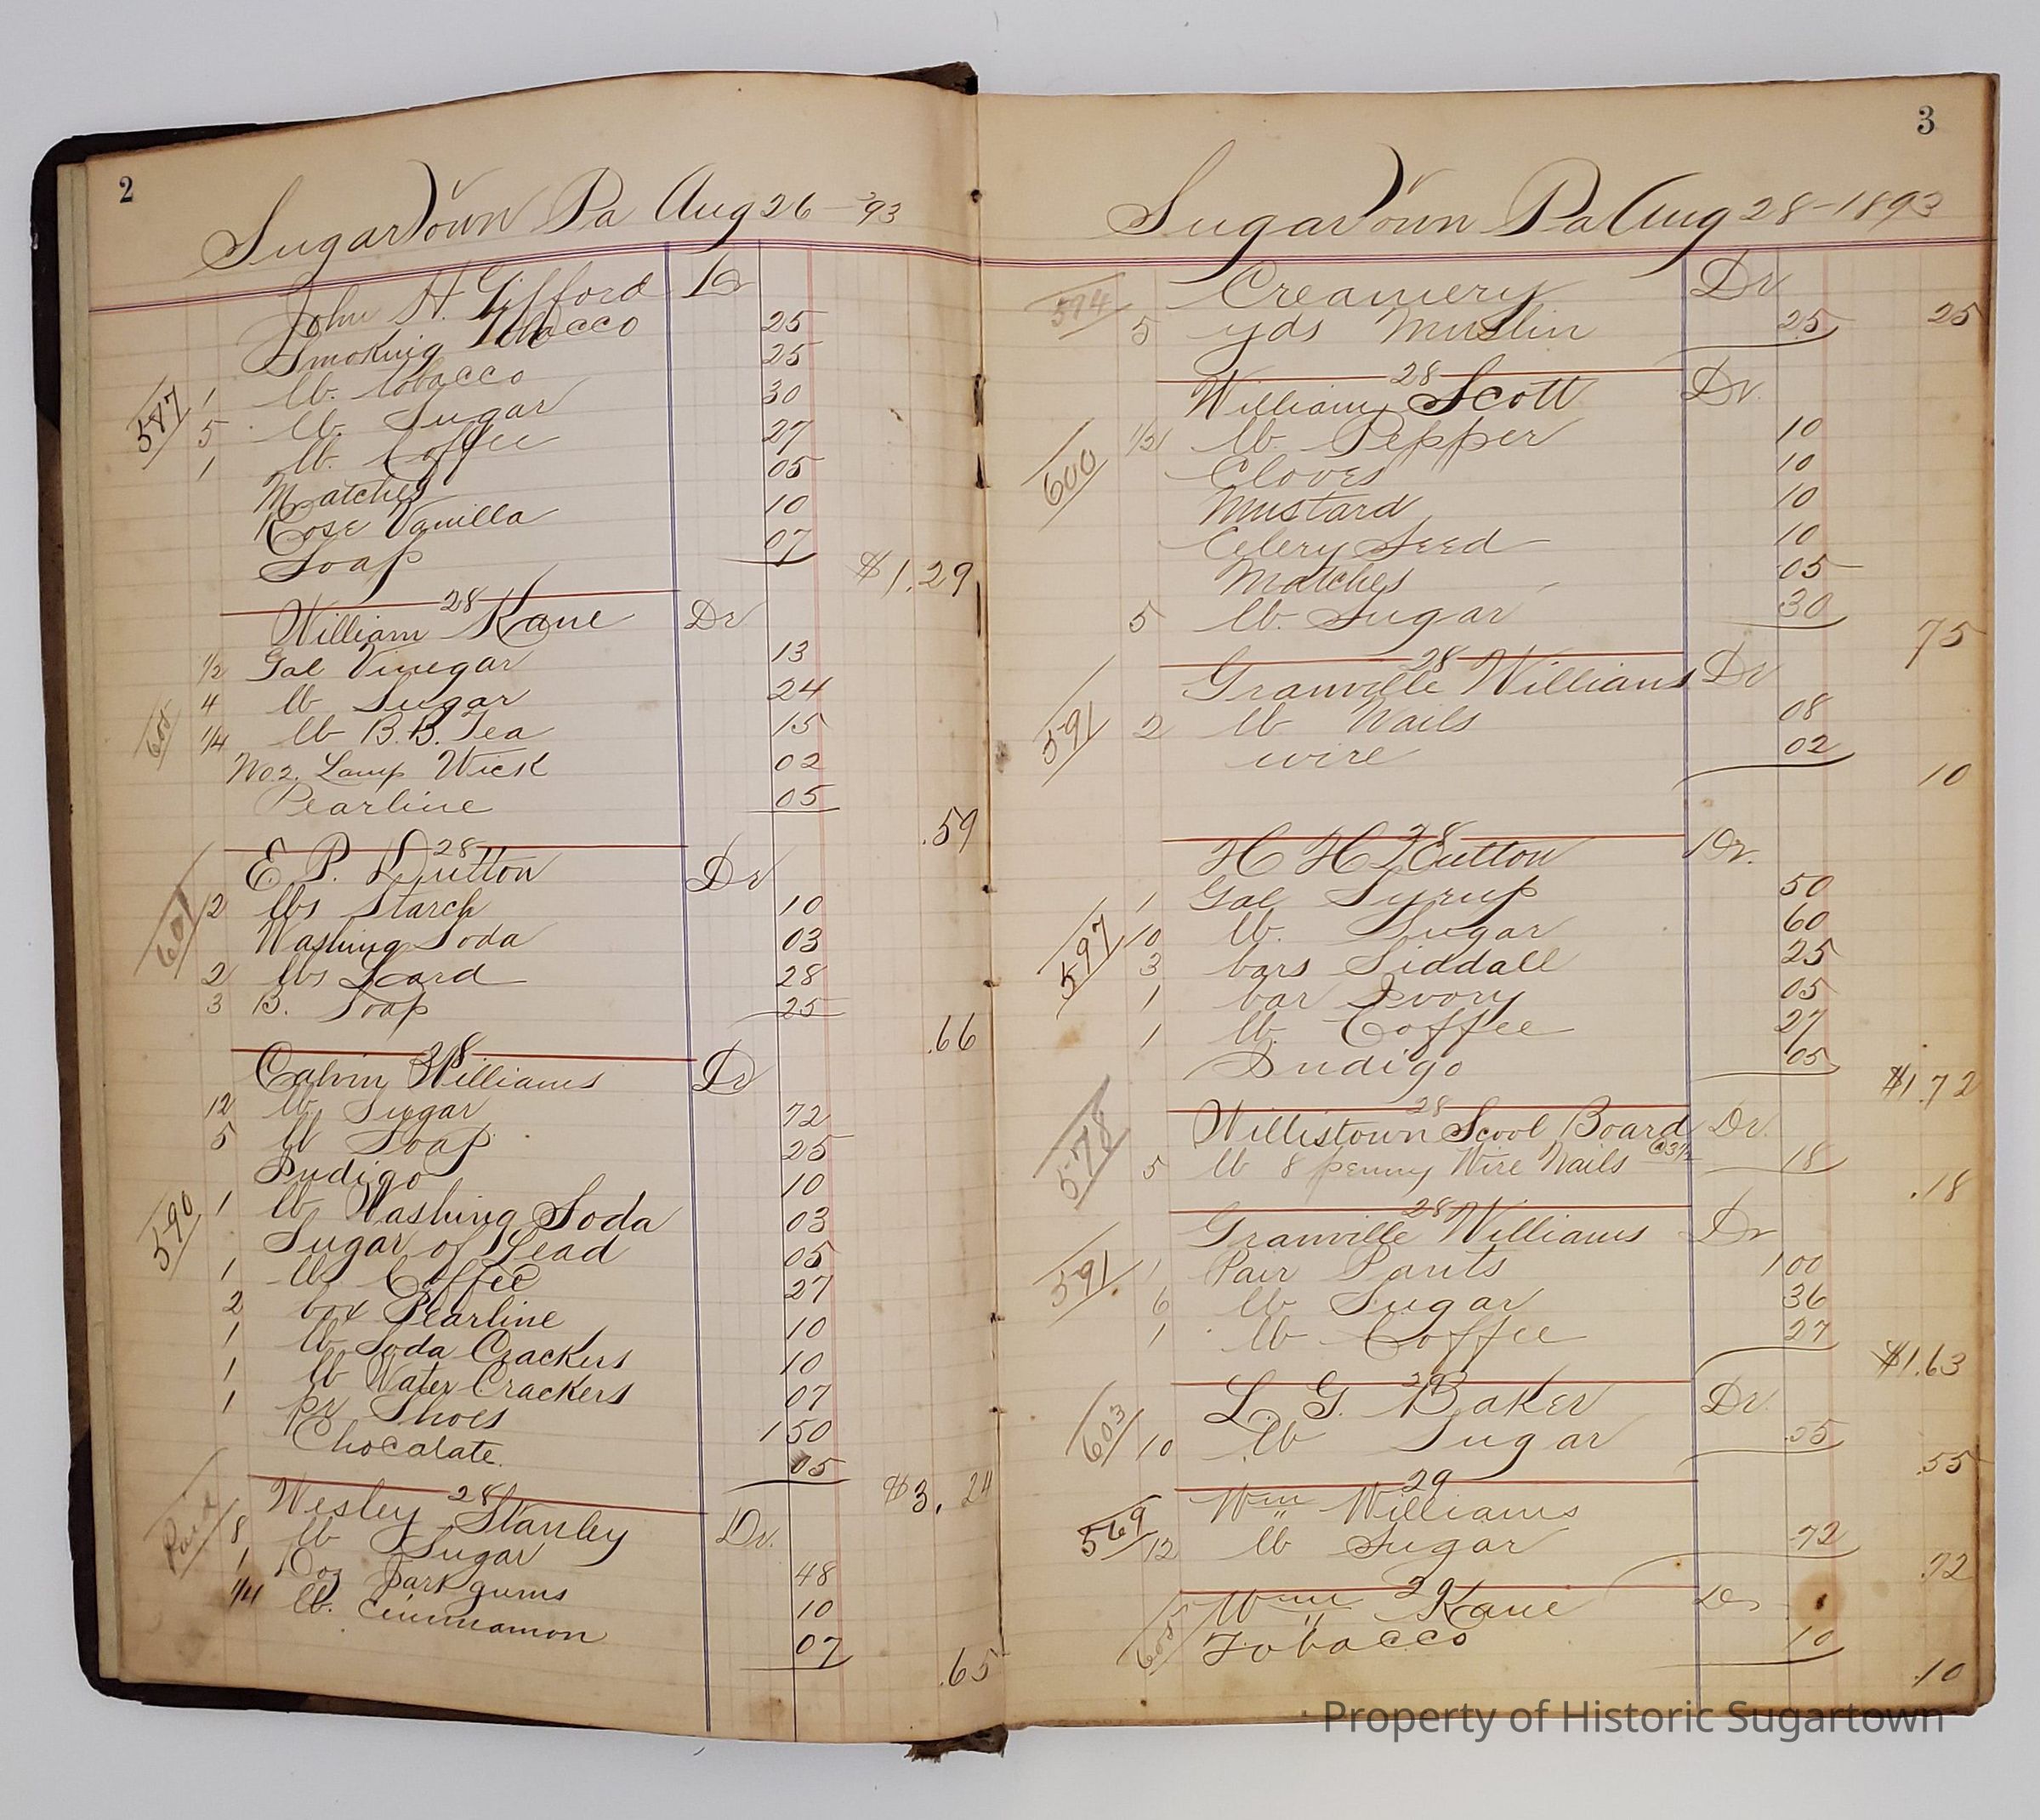 2
Sugartown Pa Aug 26 - '93
John H. Gifford Dr
Smoking Tobacco 25
587 1 lb. tobacco 25
5 lb. Sugar 30
1 lb. Coffee 27
Matches 05
Rose Vanilla 10
Soap 07
$1.29
28
William Kane Dr
1/2 Gal Vinegar 13
4 lb Sugar 24
605 1/4 lb B.B. Tea 15
No 2. Lamp Wick 02
Pearline 05
.59
28
E. P. Dutton Dr
601 2 lbs Starch 10
Washing Soda 03
2 lbs Lard 28
3 B. Soap 25
.66
28
Calvin Williams Dr
12 lb Sugar 72
5 lb Soap 25
Indigo 10
590 1 lb Washing Soda 03
Sugar of Lead 05
1 lb Coffee 27
2 box Pearline 10
1 lb Soda Crackers 10
1 lb Water Crackers 07
1 pr Shoes 1 50
Chocalate. 05
$3.24
28
Wesley Stanley Dr.
Paid 8 lb Sugar 48
1 Doz Jar gums 10
1/4 lb. Cinnnamon 07
.65
3
Sugartown Pa Aug 28 - 1893
594 Creamery Dr
5 yds Muslin 25 25
28
William Scott Dr.
600 1/2 lb. Pepper 10
Cloves 10
Mustard 10
Celery Seed 10
Matches 05
5 lb. Sugar 30
75
28
Granville Williams Dr
591 2 lb Nails 08
wire 02
10
28
H H Dutton Dr.
1 Gal Syrup 50
597 10 lb. Sugar 60
3 bars Siddall 25
1 bar Ivory 05
1 lb. Coffee 27
Indigo 05
$1.72
28
578 Willistown Scool Board Dr.
5 lb 8 penny Wire Nails @3 1/2 18
.18
28
Granville Williams Dr
591. 1 Pair Pants 1 00
6 lb Sugar 36
1 lb Coffee 27
$1.63
29
L. G. Baker Dr.
603 10 lb Sugar .55
.55
29
Wm Williams
569 12 lb Sugar 72
.72
29
Wm Kane Dr
605 Tobacco 10
.10
Property of Historic Sugartown